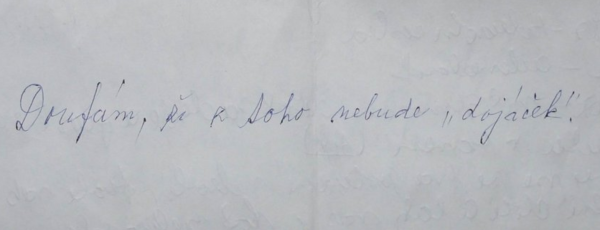 Doufám, že z toho nebude „dojáček“.